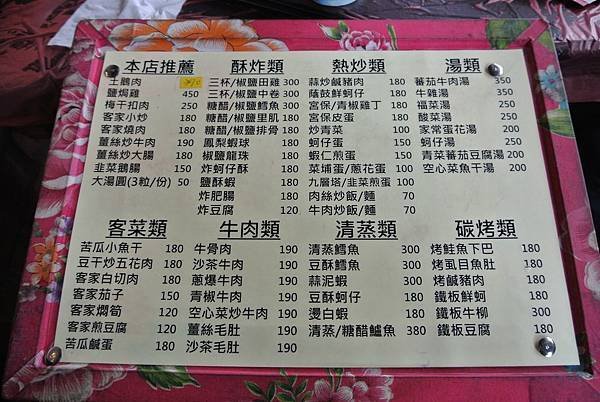 本店推薦
土鵝肉
鹽焗雞 450
梅干扣肉 250
客家小炒 180
客家燒肉 180
薑絲炒牛肉 190
薑絲炒大腸 180
韭菜鵝腸 150
大湯圓(3粒/份) 50
酥炸類
三杯/椒鹽田雞 300
三杯/椒鹽中卷 300
糖醋/椒鹽鱈魚 300
糖醋/椒鹽里肌 180
糖醋/椒鹽排骨 180
鳳梨蝦球 180
椒鹽龍珠 180
炸蚵仔酥 180
鹽酥蝦 180
炸肥腸 180
炸豆腐 120
熱炒類
蒜炒鹹豬肉 180
蔭鼓鮮蚵仔 180
宮保/青椒雞丁 180
宮保皮蛋 180
炒青菜 100
蚵仔蛋 150
蝦仁煎蛋 150
菜埔蛋/蔥花蛋 100
九層塔/韭菜煎蛋 100
肉絲炒飯/麵 70
牛肉炒飯/麵 70
湯類
蕃茄牛肉湯 350
牛雜湯 350
福菜湯 250
酸菜湯 250
家常蛋花湯 200
蚵仔湯 250
青菜蕃茄豆腐湯 200
空心菜魚干湯 200
客菜類
苦瓜小魚干 180
豆干炒五花肉 180
客家白切肉 180
客家茄子 150
客家燜筍 120
客家煎豆腐 120
苦瓜鹹蛋 180
牛肉類
牛骨肉 190
沙茶牛肉 190
蔥爆牛肉 190
青椒牛肉 190
空心菜炒牛肉 190
薑絲毛肚 190
沙茶毛肚 190
清蒸類
清蒸鱈魚 300
豆酥鱈魚 300
蒜泥蝦 300
豆酥蚵仔 180
燙白蝦 300
清蒸/糖醋鱸魚 380
碳烤類
烤鮭魚下巴 180
烤虱目魚肚 180
烤鹹豬肉 180
鐵板鮮蚵 180
鐵板牛柳 300
鐵板豆腐 180